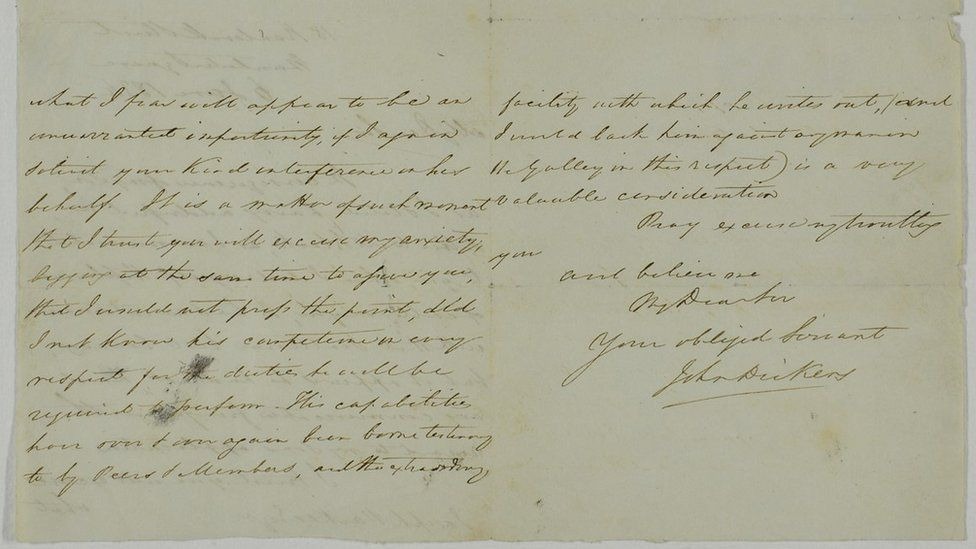 what I fear will appear to be an
unwarranted importunity, if I again
solicit your Kind interference in his
behalf. It is a matter of such moment
that I trust you will excuse my anxiety,
begging at the same time to assure you,
that I would not press the point, did
I not Know his competence in every
respect for the duties he will be
required to perform. His capabilities
have over & over again been borne testimony
to by Peers & Members, and the extraordinary
facility with which he writes out, (and
I would back him against any man in
the Galley in this respect) is a very
valuable consideration
Pray excuse my troubling
you
and believe me
My Dear Sir
Your obliged Servant
John Dickens